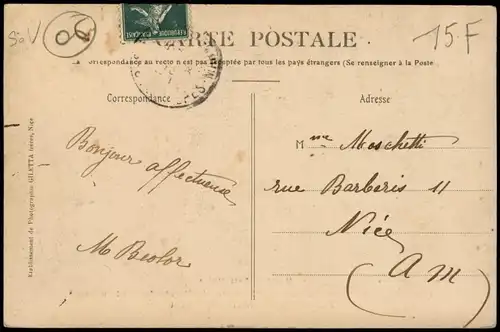 CARTE POSTALE
La Correspondance au recto n'est pas acceptée par tous les pays étrangers (Se renseigner à la Poste
15F
Correspondance
Adresse
Bonjour affectueux
M Beolor
Mme Moschetti
rue Barberis 11
Nice
(A M)
Etablissement de Photographie GILETTA frères, Nice